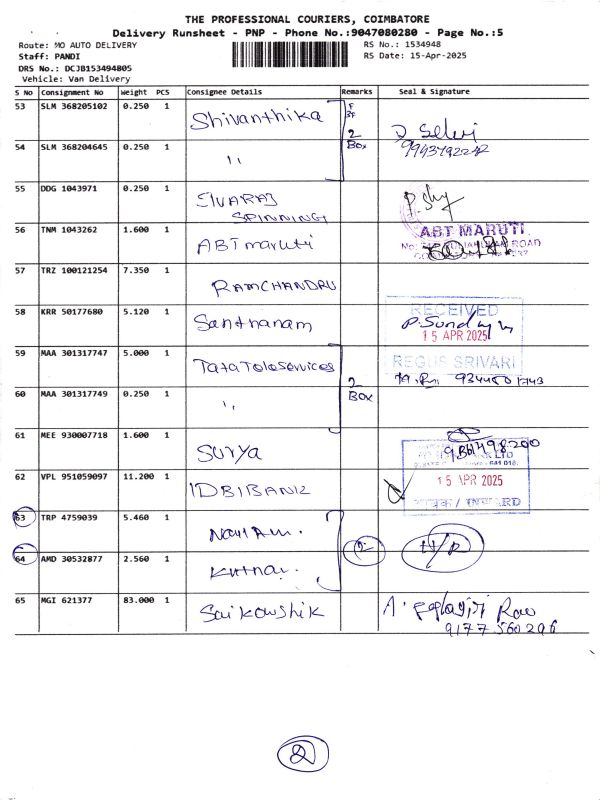 THE PROFESSIONAL COURIERS, COIMBATORE
Delivery Runsheet - PNP - Phone No.:9047080280 - Page No.:5
Route: MO AUTO DELIVERY
Staff: PANDI
DRS No.: DCJB153494805
Vehicle: Van Delivery
RS No.: 1534948
RS Date: 15-Apr-2025
S No Consignment No Weight PCS Consignee Details Remarks Seal & Signature
53 SLM 368205102 0.250 1 Shivanthika
2 Box
54 SLM 368204645 0.250 1 ,,
55 DDG 1043971 0.250 1 SIVARAJ SPINNING
56 TNM 1043262 1.600 1 ABT maruti ABT MARUTI
ROAD
57 TRZ 100121254 7.350 1 RAMCHANDRU
58 KRR 50177680 5.120 1 Santhanam
RECEIVED
15 APR 2025
REGUS SRIVARI
59 MAA 301317747 5.000 1 TataTeleservices
2 Box
60 MAA 301317749 0.250 1 ,,
61 MEE 930007718 1.600 1 SURYA
62 VPL 951059097 11.200 1 IDBI BANK
15 APR 2025
INWARD
63 TRP 4759039 5.460 1
2
64 AMD 30532877 2.560 1
65 MGI 621377 83.000 1 Saikowshik
Rao
9177560296
2